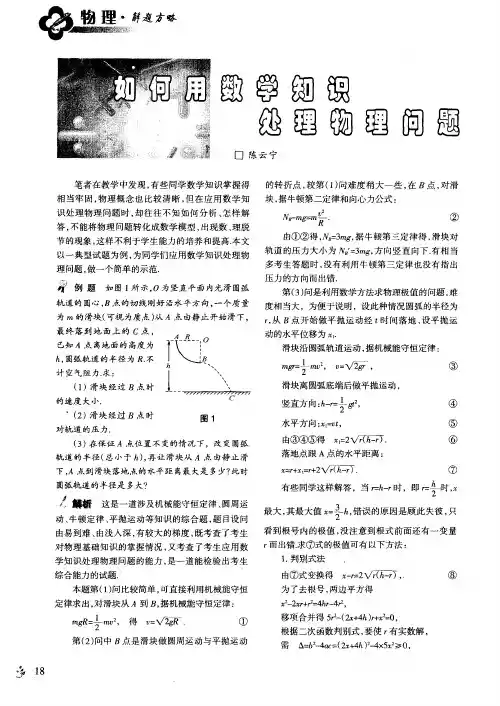 物理·解题方略
如何用数学知识
处理物理问题
□ 陈云宁
笔者在教学中发现,有些同学数学知识掌握得
相当牢固,物理概念也比较清晰,但在应用数学知
识处理物理问题时,却往往不知如何分析、怎样解
答,不能将物理问题转化成数学模型,出现数、理脱
节的现象,这样不利于学生能力的培养和提高.本文
以一典型试题为例,为同学们应用数学知识处理物
理问题,做一个简单的示范.
例题 如图1所示,O为竖直平面内光滑圆弧
轨道的圆心,B点的切线刚好沿水平方向,一个质量
为m的滑块(可视为质点)从A点由静止开始滑下,
最终落到地面上的C点,
已知A点离地面的高度为
h,圆弧轨道的半径为R.不
计空气阻力.求:
(1) 滑块经过B点时
的速度大小.
(2) 滑块经过B点时
对轨道的压力.
A R O
h
B
C
图1
(3) 在保证A点位置不变的情况下,改变圆弧
轨道的半径(总小于h),再让滑块从A点由静止滑
下,A点到滑块落地点的水平距离最大是多少?此时
圆弧轨道的半径是多大?
解析 这是一道涉及机械能守恒定律、圆周运
动、牛顿定律、平抛运动等知识的综合题,题目设问
由易到难、由浅入深,有较大的梯度,既考查了考生
对物理基础知识的掌握情况,又考查了考生应用数
学知识处理物理问题的能力,是一道能检验出考生
综合能力的试题.
本题第(1)问比较简单,可直接利用机械能守恒
定律求出,对滑块从A到B,据机械能守恒定律:
mgR=½mv², 得 v=√2gR . ①
第(2)问中B点是滑块做圆周运动与平抛运动
的转折点,较第(1)问难度稍大一些,在B点,对滑
块,据牛顿第二定律和向心力公式:
N_B-mg=m v²/R . ②
由①②得,N_B=3mg,据牛顿第三定律得,滑块对
轨道的压力大小为N_B′=3mg,方向竖直向下.有相当
多考生答题时,没有利用牛顿第三定律也没有指出
压力的方向而出错.
第(3)问是利用数学方法求物理极值的问题,难
度相当大,为便于说明,设此种情况圆弧的半径为
r,从B点开始做平抛运动经t时间落地,设平抛运
动的水平位移为x₁.
滑块沿圆弧轨道运动,据机械能守恒定律:
mgr=½mv², v=√2gr , ③
滑块离圆弧底端后做平抛运动,
竖直方向:h-r=½gt², ④
水平方向:x₁=vt, ⑤
由③④⑤得 x₁=2√r(h-r). ⑥
落地点跟A点的水平距离:
x=r+x₁=r+2√r(h-r) . ⑦
有些同学这样解答,当r=h-r时,即r=h/2时,x
最大,其最大值x=3/2 h,错误的原因是顾此失彼,只
看到根号内的极值,没注意到根式前面还有一变量
r而出错.求⑦式的极值可有以下方法:
1. 判别式法
由⑦式变换得 x-r=2√r(h-r) , ⑧
为了去根号,两边平方得
x²-2xr+r²=4hr-4r²,
移项合并得5r²-(2x+4h)r+x²=0,
根据二次函数判别式,要使r有实数解,
需 Δ=b²-4ac=(2x+4h)²-4×5x²≥0,
18